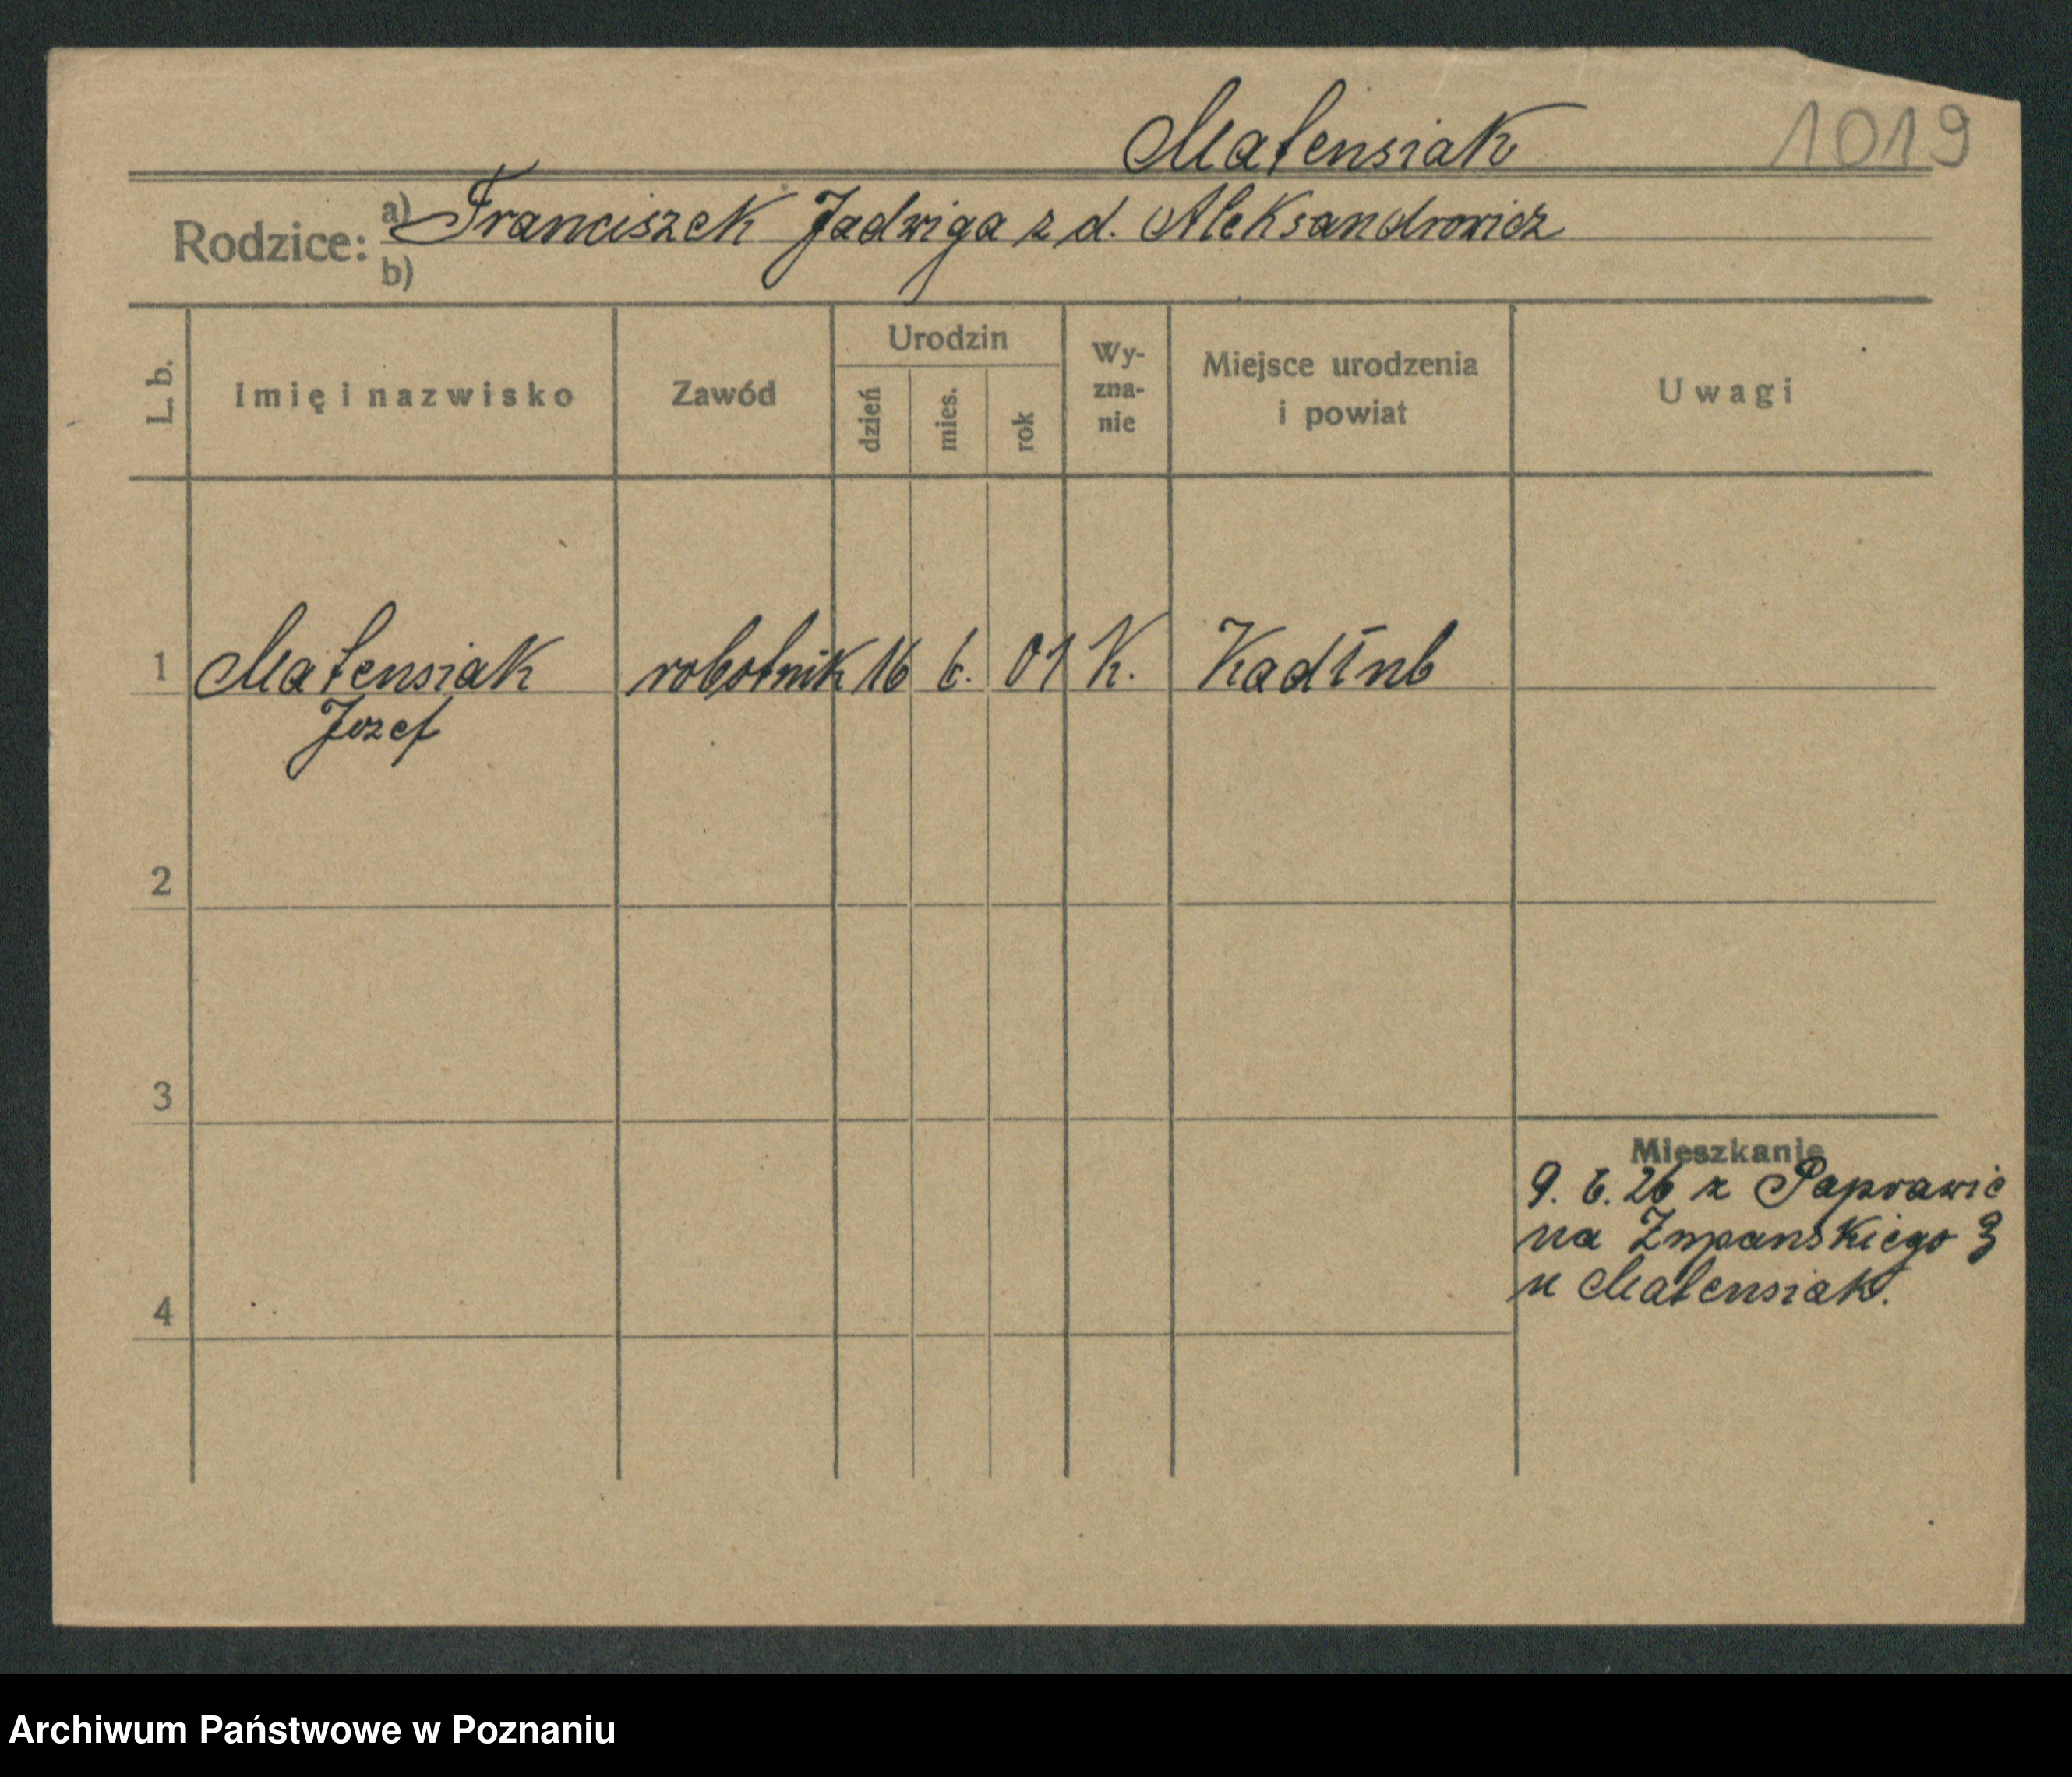 Matensiak
1019
Rodzice: a) Franciszek Jadwiga z d. Aleksandrowicz
b)
L. b.
Imię i nazwisko
Zawód
Urodzin
dzień
mies.
rok
Wy-
zna-
nie
Miejsce urodzenia
i powiat
Uwagi
1 Matensiak robotnik 16 6. 01 K. Kadłub
Jozef
2
3
4
Mieszkanie
9. 6. 26 z Paprawic
na Żupanskiego 3
u Matensiak.
Archiwum Państwowe w Poznaniu